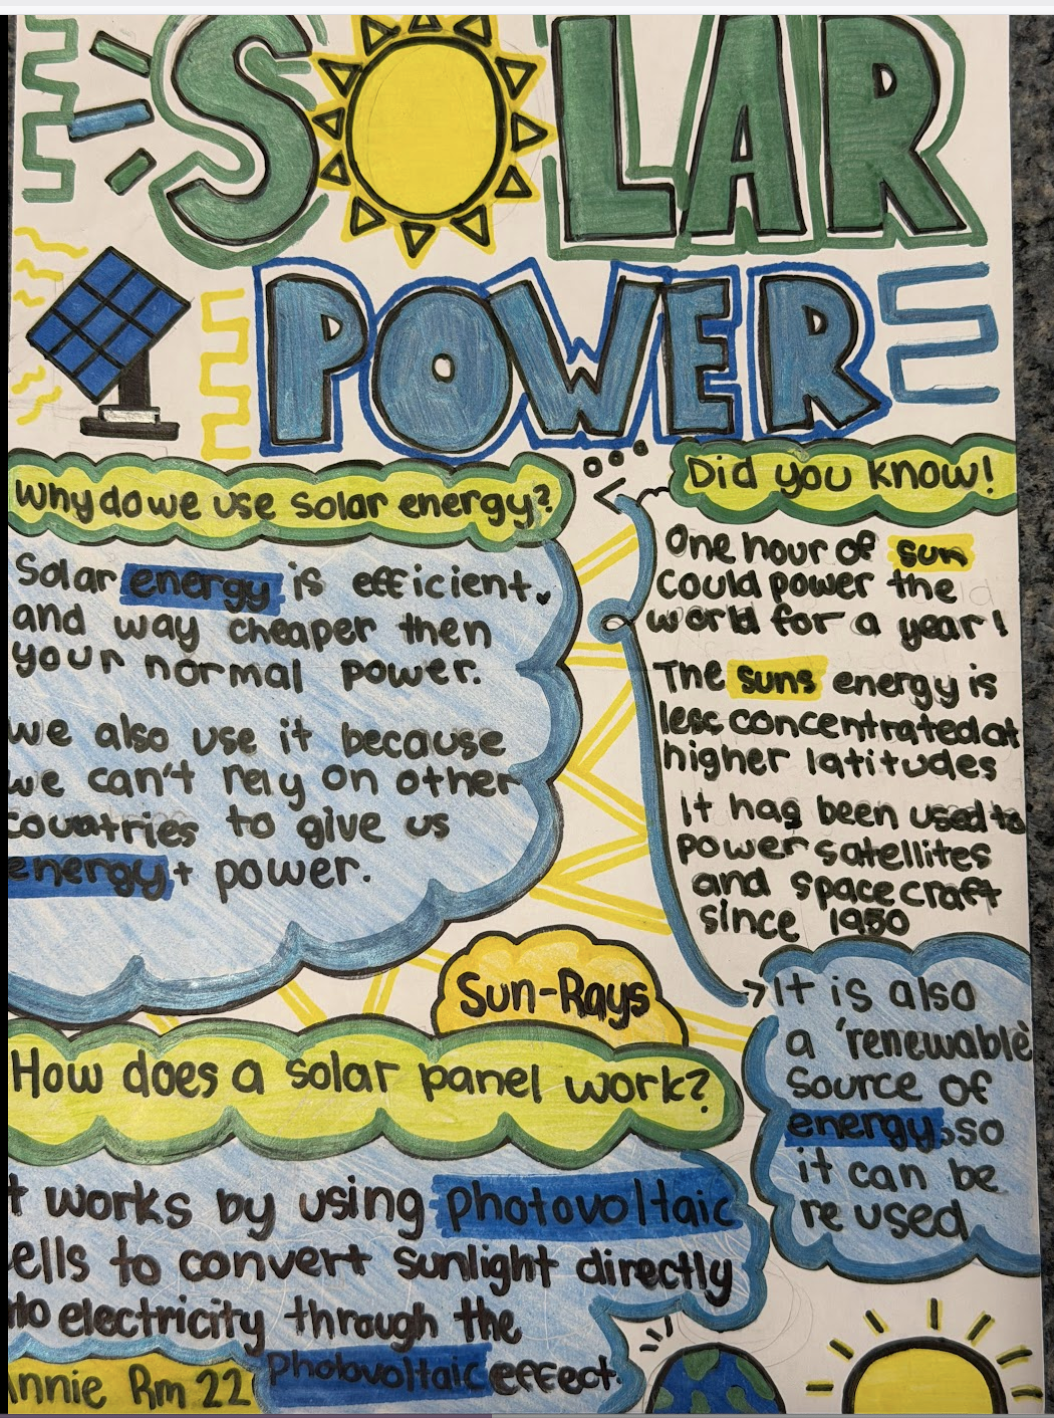 SOLAR
POWER
Why do we use solar energy?
Solar energy is efficient,
and way cheaper then
your normal power.
we also use it because
we can't rely on other
countries to give us
energy + power.
Did you know!
One hour of sun
could power the
world for a year!
The suns energy is
less concentrated at
higher latitudes
It has been used to
power satellites
and spacecraft
since 1950
It is also
a 'renewable'
source of
energy, so
it can be
re used
Sun-Rays
How does a solar panel work?
t works by using photovoltaic
ells to convert sunlight directly
to electricity through the
photovoltaic effect.
nnie Rm 22